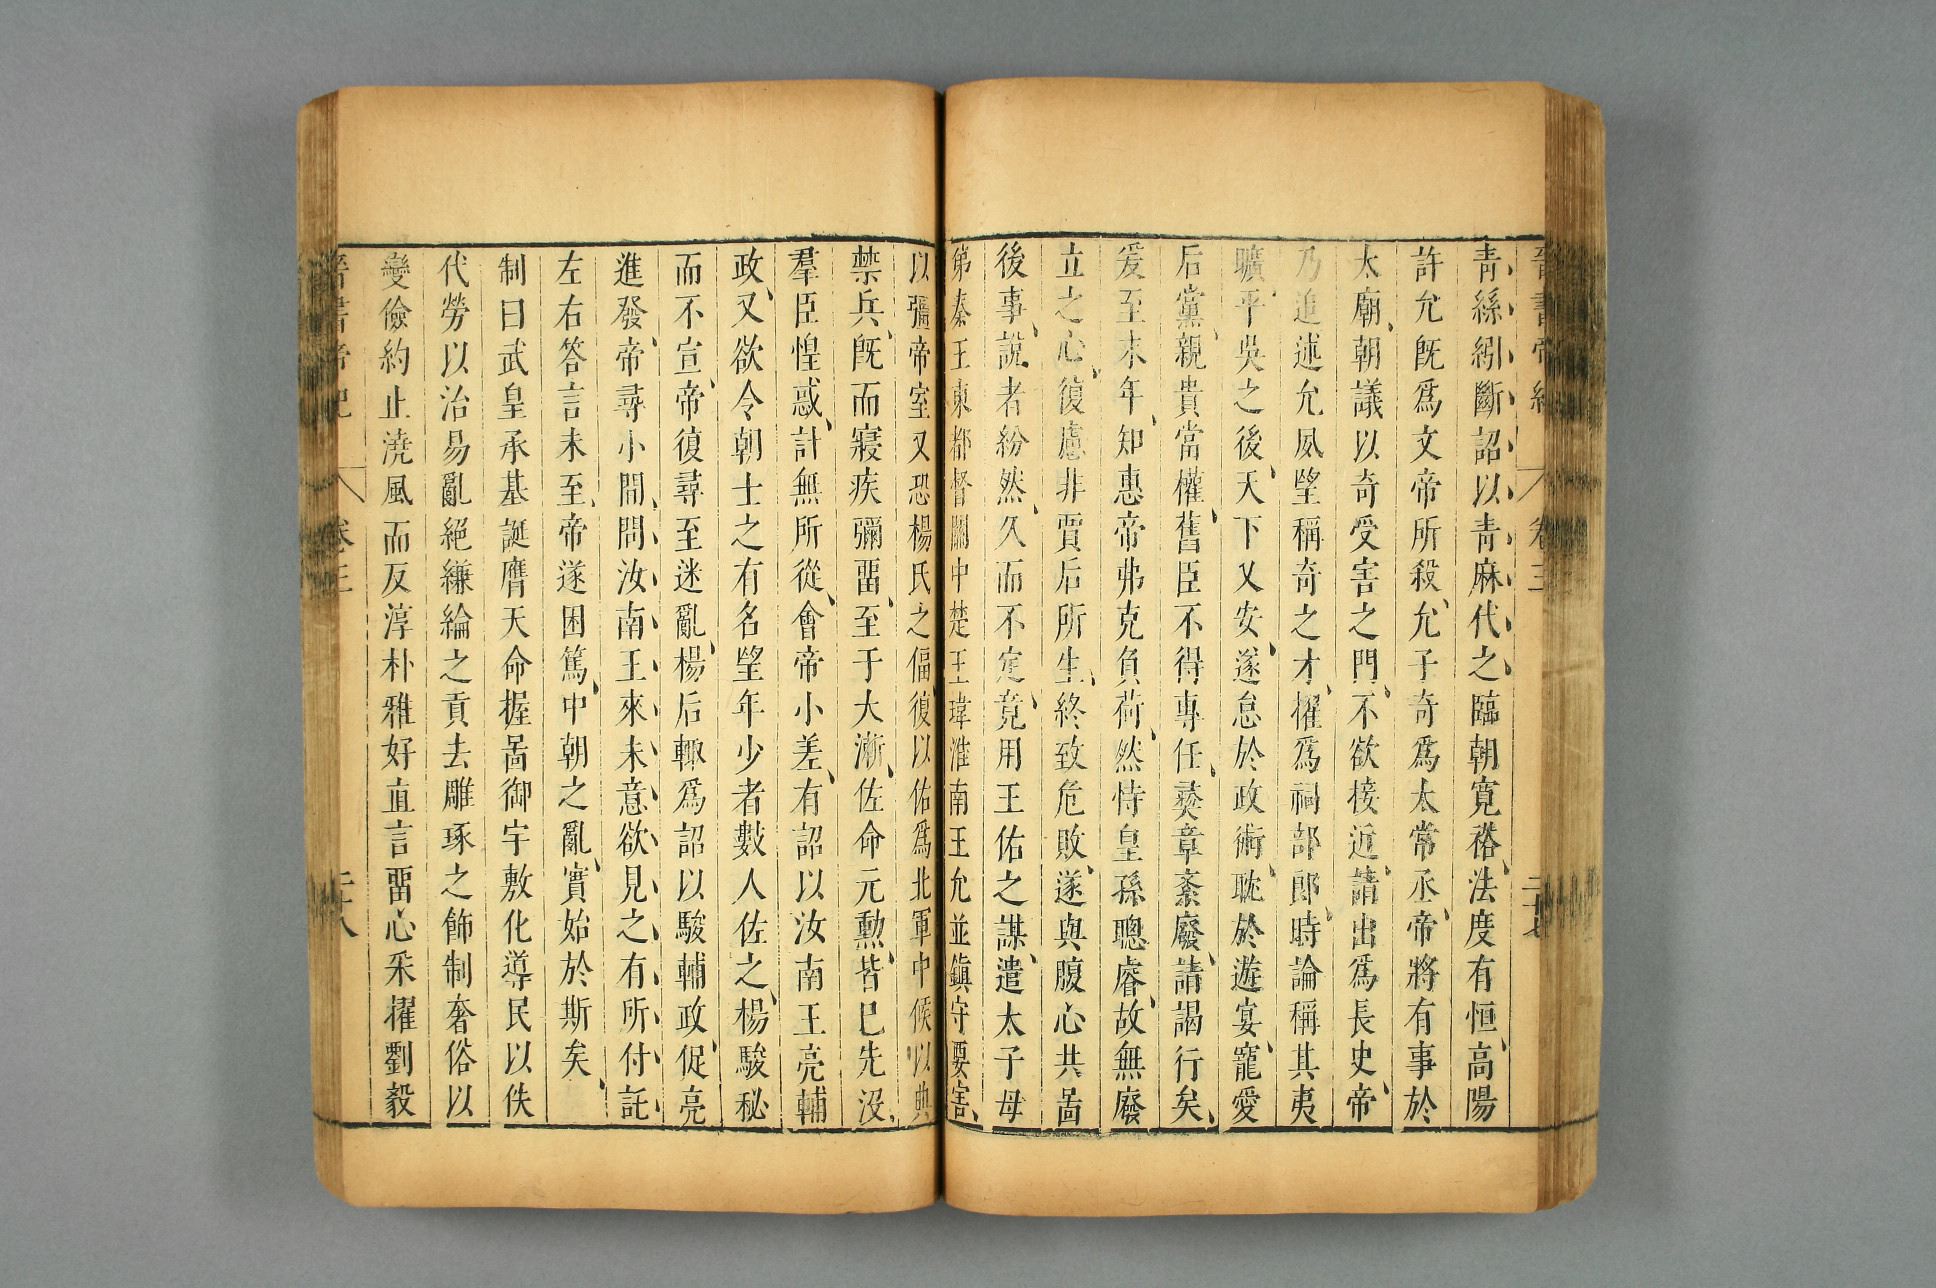 晉書帝紀 卷三 二十七
青絲紖斷詔以青麻代之臨朝寬裕法度有恒高陽
許允旣爲文帝所殺允子奇爲太常丞帝將有事於
太廟朝議以奇受害之門不欲接近請出爲長史帝
乃追述允夙望稱奇之才擢爲祠部郎時論稱其夷
曠平吳之後天下乂安遂怠於政術耽於遊宴寵愛
后黨親貴當權舊臣不得專任彛章紊廢請謁行矣
爰至末年知惠帝弗克負荷然恃皇孫聰睿故無廢
立之心復慮非賈后所生終致危敗遂與腹心共啚
後事說者紛然久而不定竟用王佑之謀遣太子母
弟秦王柬都督關中楚王瑋淮南王允並鎭守要害
以彊帝室又恐楊氏之偪復以佑爲北軍中候以典
禁兵旣而寢疾彌畱至于大漸佐命元勲皆已先沒
羣臣惶惑計無所從會帝小差有詔以汝南王亮輔
政又欲令朝士之有名望年少者數人佐之楊駿秘
而不宣帝復尋至迷亂楊后輙爲詔以駿輔政促亮
進發帝尋小間問汝南王來未意欲見之有所付託
左右答言未至帝遂困篤中朝之亂實始於斯矣
制曰武皇承基誕膺天命握啚御宇敷化導民以佚
代勞以治易亂絕縑綸之貢去雕琢之飾制奢俗以
變儉約止澆風而反淳朴雅好直言畱心采擢劉毅
晉書帝紀 卷三 二十八